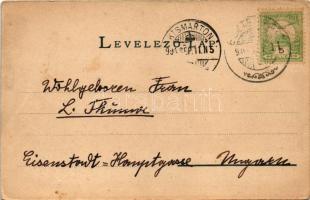 LEVELEZŐ-LAP
KISMARTON
Wohlgeboren Frau
L.
Eisenstadt = Hauptgasse Ungarn